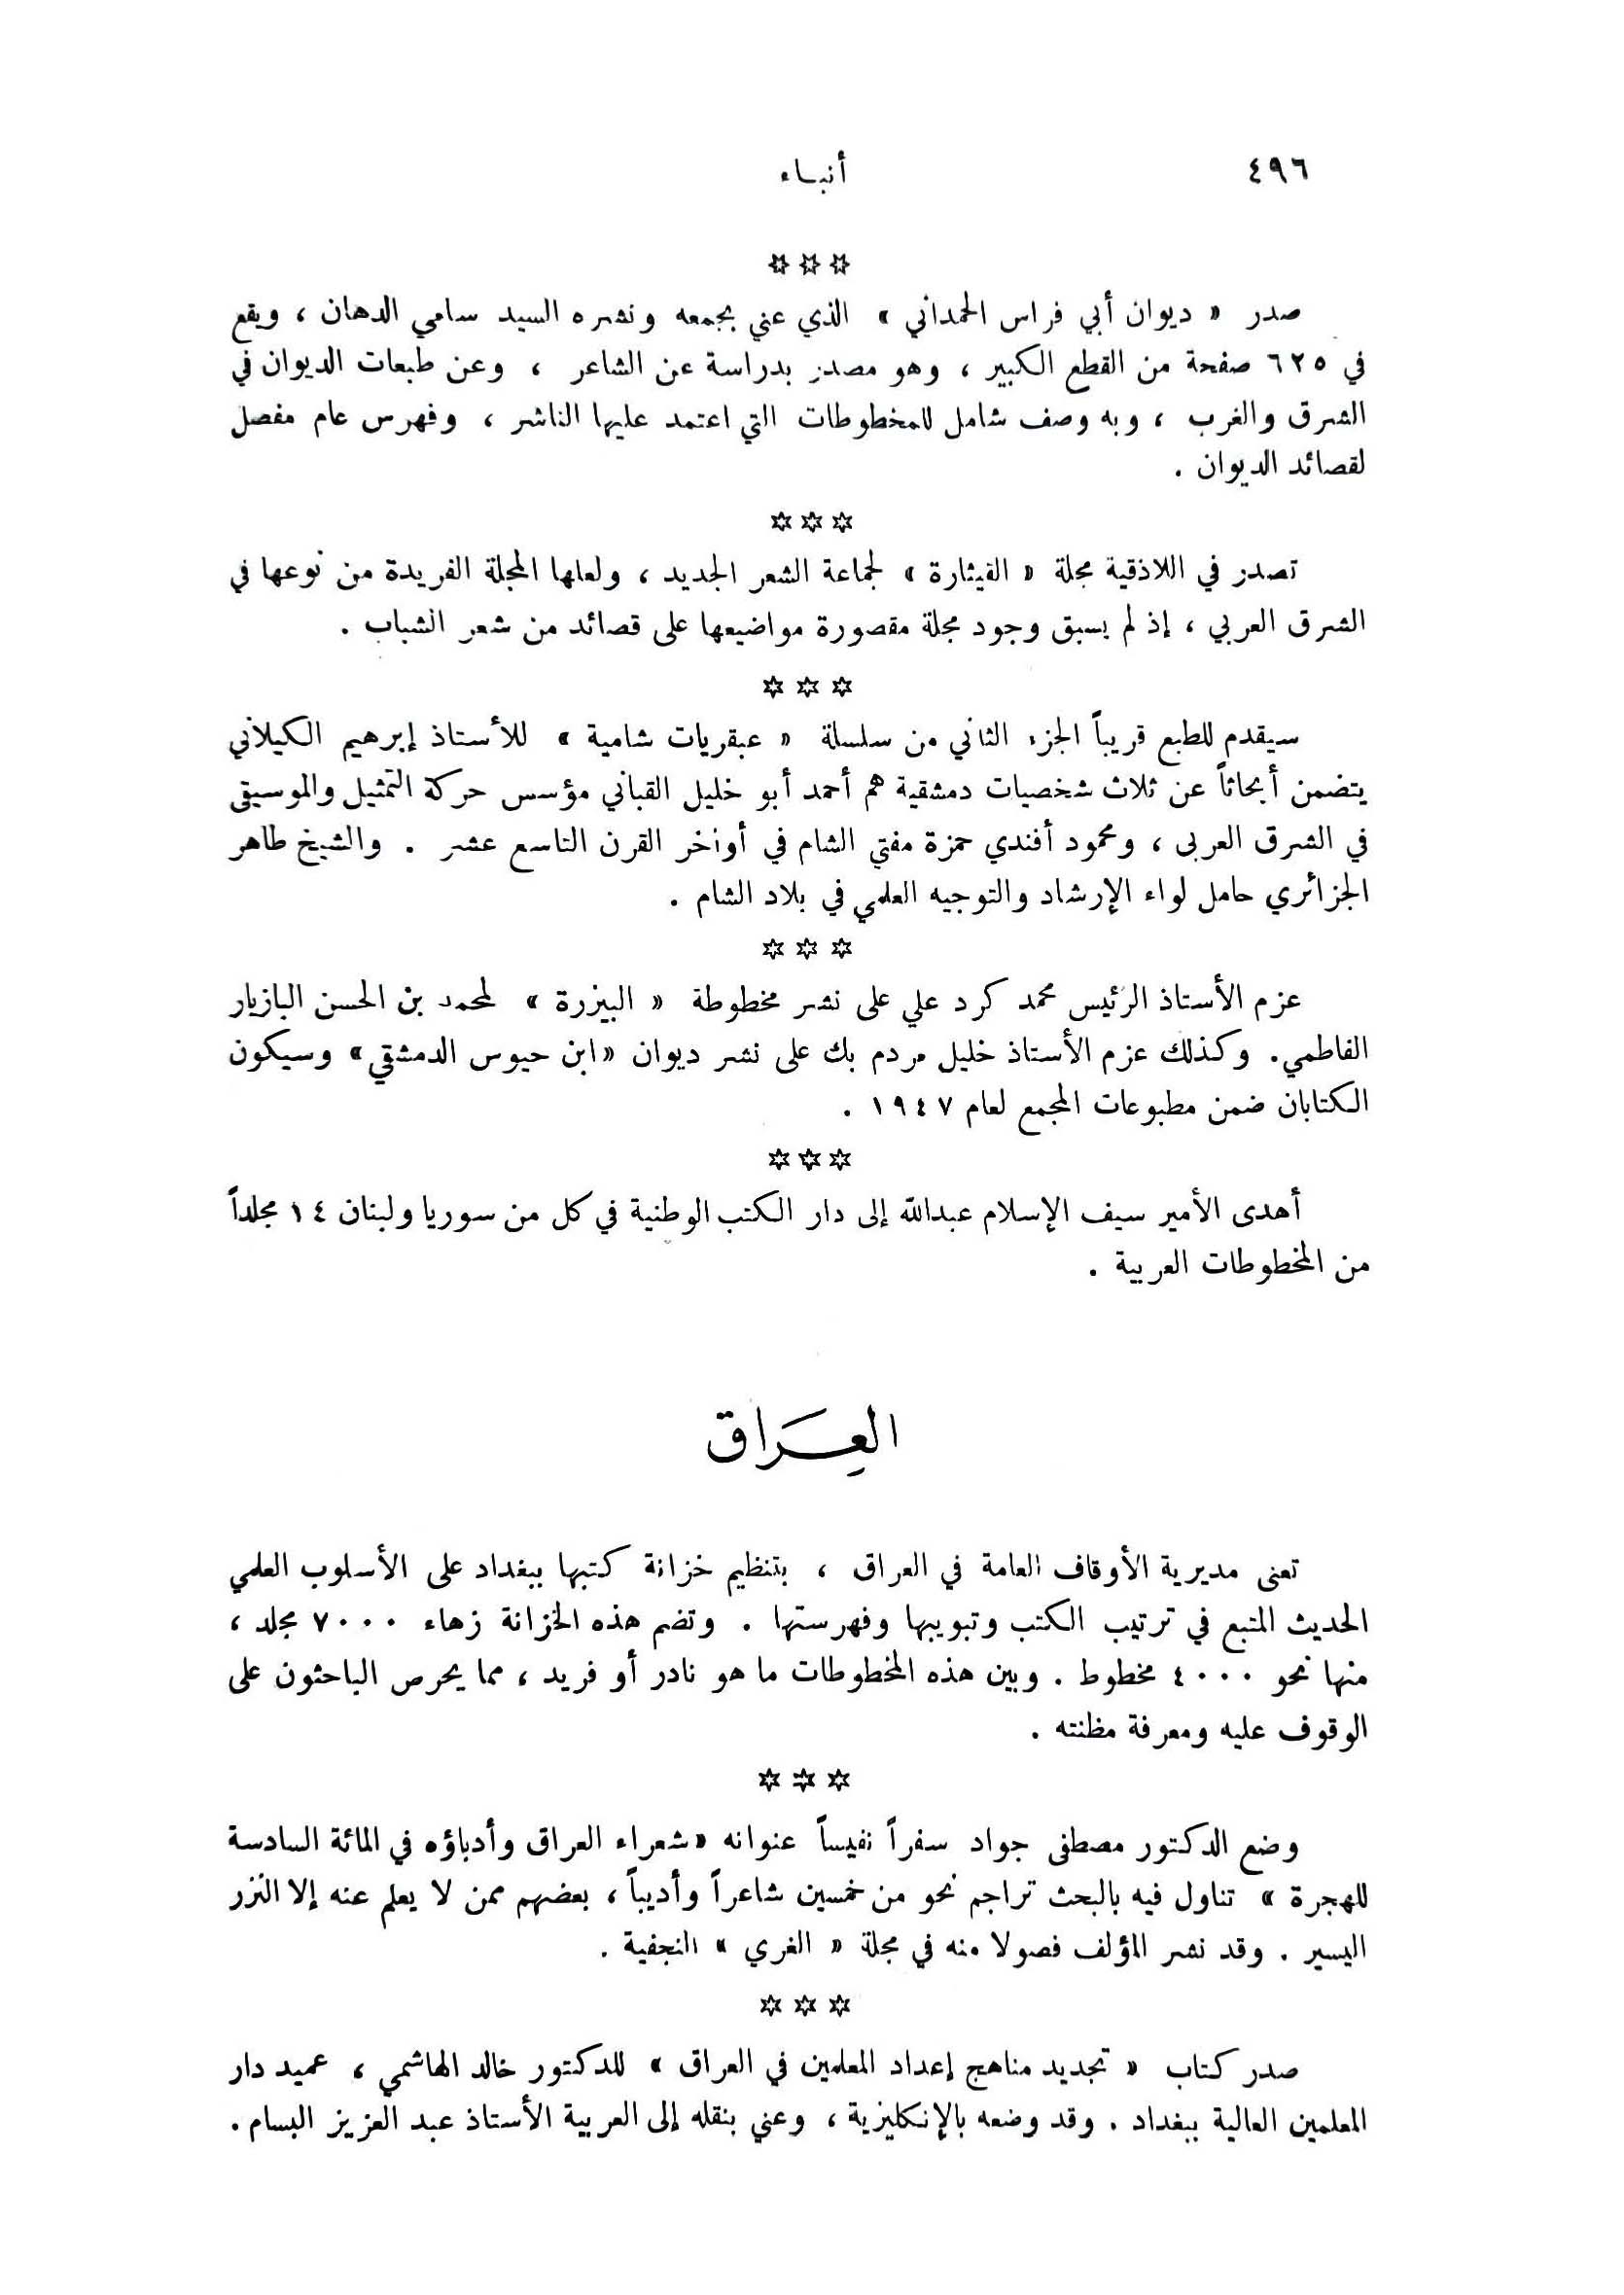 ٤٩٦
أنباء
✡ ✡ ✡
صدر « ديوان أبي فراس الحمداني » الذي عني بجمعه ونشره السيد سامي الدهان ، ويقع
في ٦٢٥ صفحة من القطع الكبير ، وهو مصدر بدراسة عن الشاعر ، وعن طبعات الديوان في
الشرق والغرب ، وبه وصف شامل للمخطوطات التي اعتمد عليها الناشر ، وفهرس عام مفصل
لقصائد الديوان .
✡ ✡ ✡
تصدر في اللاذقية مجلة « القيثارة » لجماعة الشعر الجديد ، ولعلها المجلة الفريدة من نوعها في
الشرق العربي ، إذ لم يسبق وجود مجلة مقصورة مواضيعها على قصائد من شعر الشباب .
✡ ✡ ✡
سيقدم للطبع قريباً الجزء الثاني من سلسلة « عبقريات شامية » للأستاذ إبرهيم الكيلاني
يتضمن أبحاثاً عن ثلاث شخصيات دمشقية هم أحمد أبو خليل القباني مؤسس حركة التمثيل والموسيقى
في الشرق العربى ، ومحمود أفندي حمزة مفتي الشام في أواخر القرن التاسع عشر . والشيخ طاهر
الجزائري حامل لواء الإرشاد والتوجيه العلمي في بلاد الشام .
✡ ✡ ✡
عزم الأستاذ الرئيس محمد كرد علي على نشر مخطوطة « البيزرة » لمحمد بن الحسن البازيار
الفاطمي. وكذلك عزم الأستاذ خليل مردم بك على نشر ديوان «ابن حيوس الدمشقي» وسيكون
الكتابان ضمن مطبوعات المجمع لعام ١٩٤٧ .
✡ ✡ ✡
أهدى الأمير سيف الإسلام عبدالله إلى دار الكتب الوطنية في كل من سوريا ولبنان ١٤ مجلداً
من المخطوطات العربية .
العِرَاق
تعنى مديرية الأوقاف العامة في العراق ، بتنظيم خزانة كتبها ببغداد على الأسلوب العلمي
الحديث المتبع في ترتيب الكتب وتبويبها وفهرستها . وتضم هذه الخزانة زهاء ٧٠٠٠ مجلد ،
منها نحو ٤٠٠٠ مخطوط . وبين هذه المخطوطات ما هو نادر أو فريد ، مما يحرص الباحثون على
الوقوف عليه ومعرفة مظنته .
✡ ✡ ✡
وضع الدكتور مصطفى جواد سفراً نفيساً عنوانه «شعراء العراق وأدباؤه في المائة السادسة
للهجرة » تناول فيه بالبحث تراجم نحو من خمسين شاعراً وأديباً ، بعضهم ممن لا يعلم عنه إلا النزر
اليسير . وقد نشر المؤلف فصولا منه في مجلة « الغري » النجفية .
✡ ✡ ✡
صدر كتاب « تجديد مناهج إعداد المعلمين في العراق » للدكتور خالد الهاشمي ، عميد دار
المعلمين العالية ببغداد . وقد وضعه بالإنكليزية ، وعني بنقله إلى العربية الأستاذ عبد العزيز البسام .